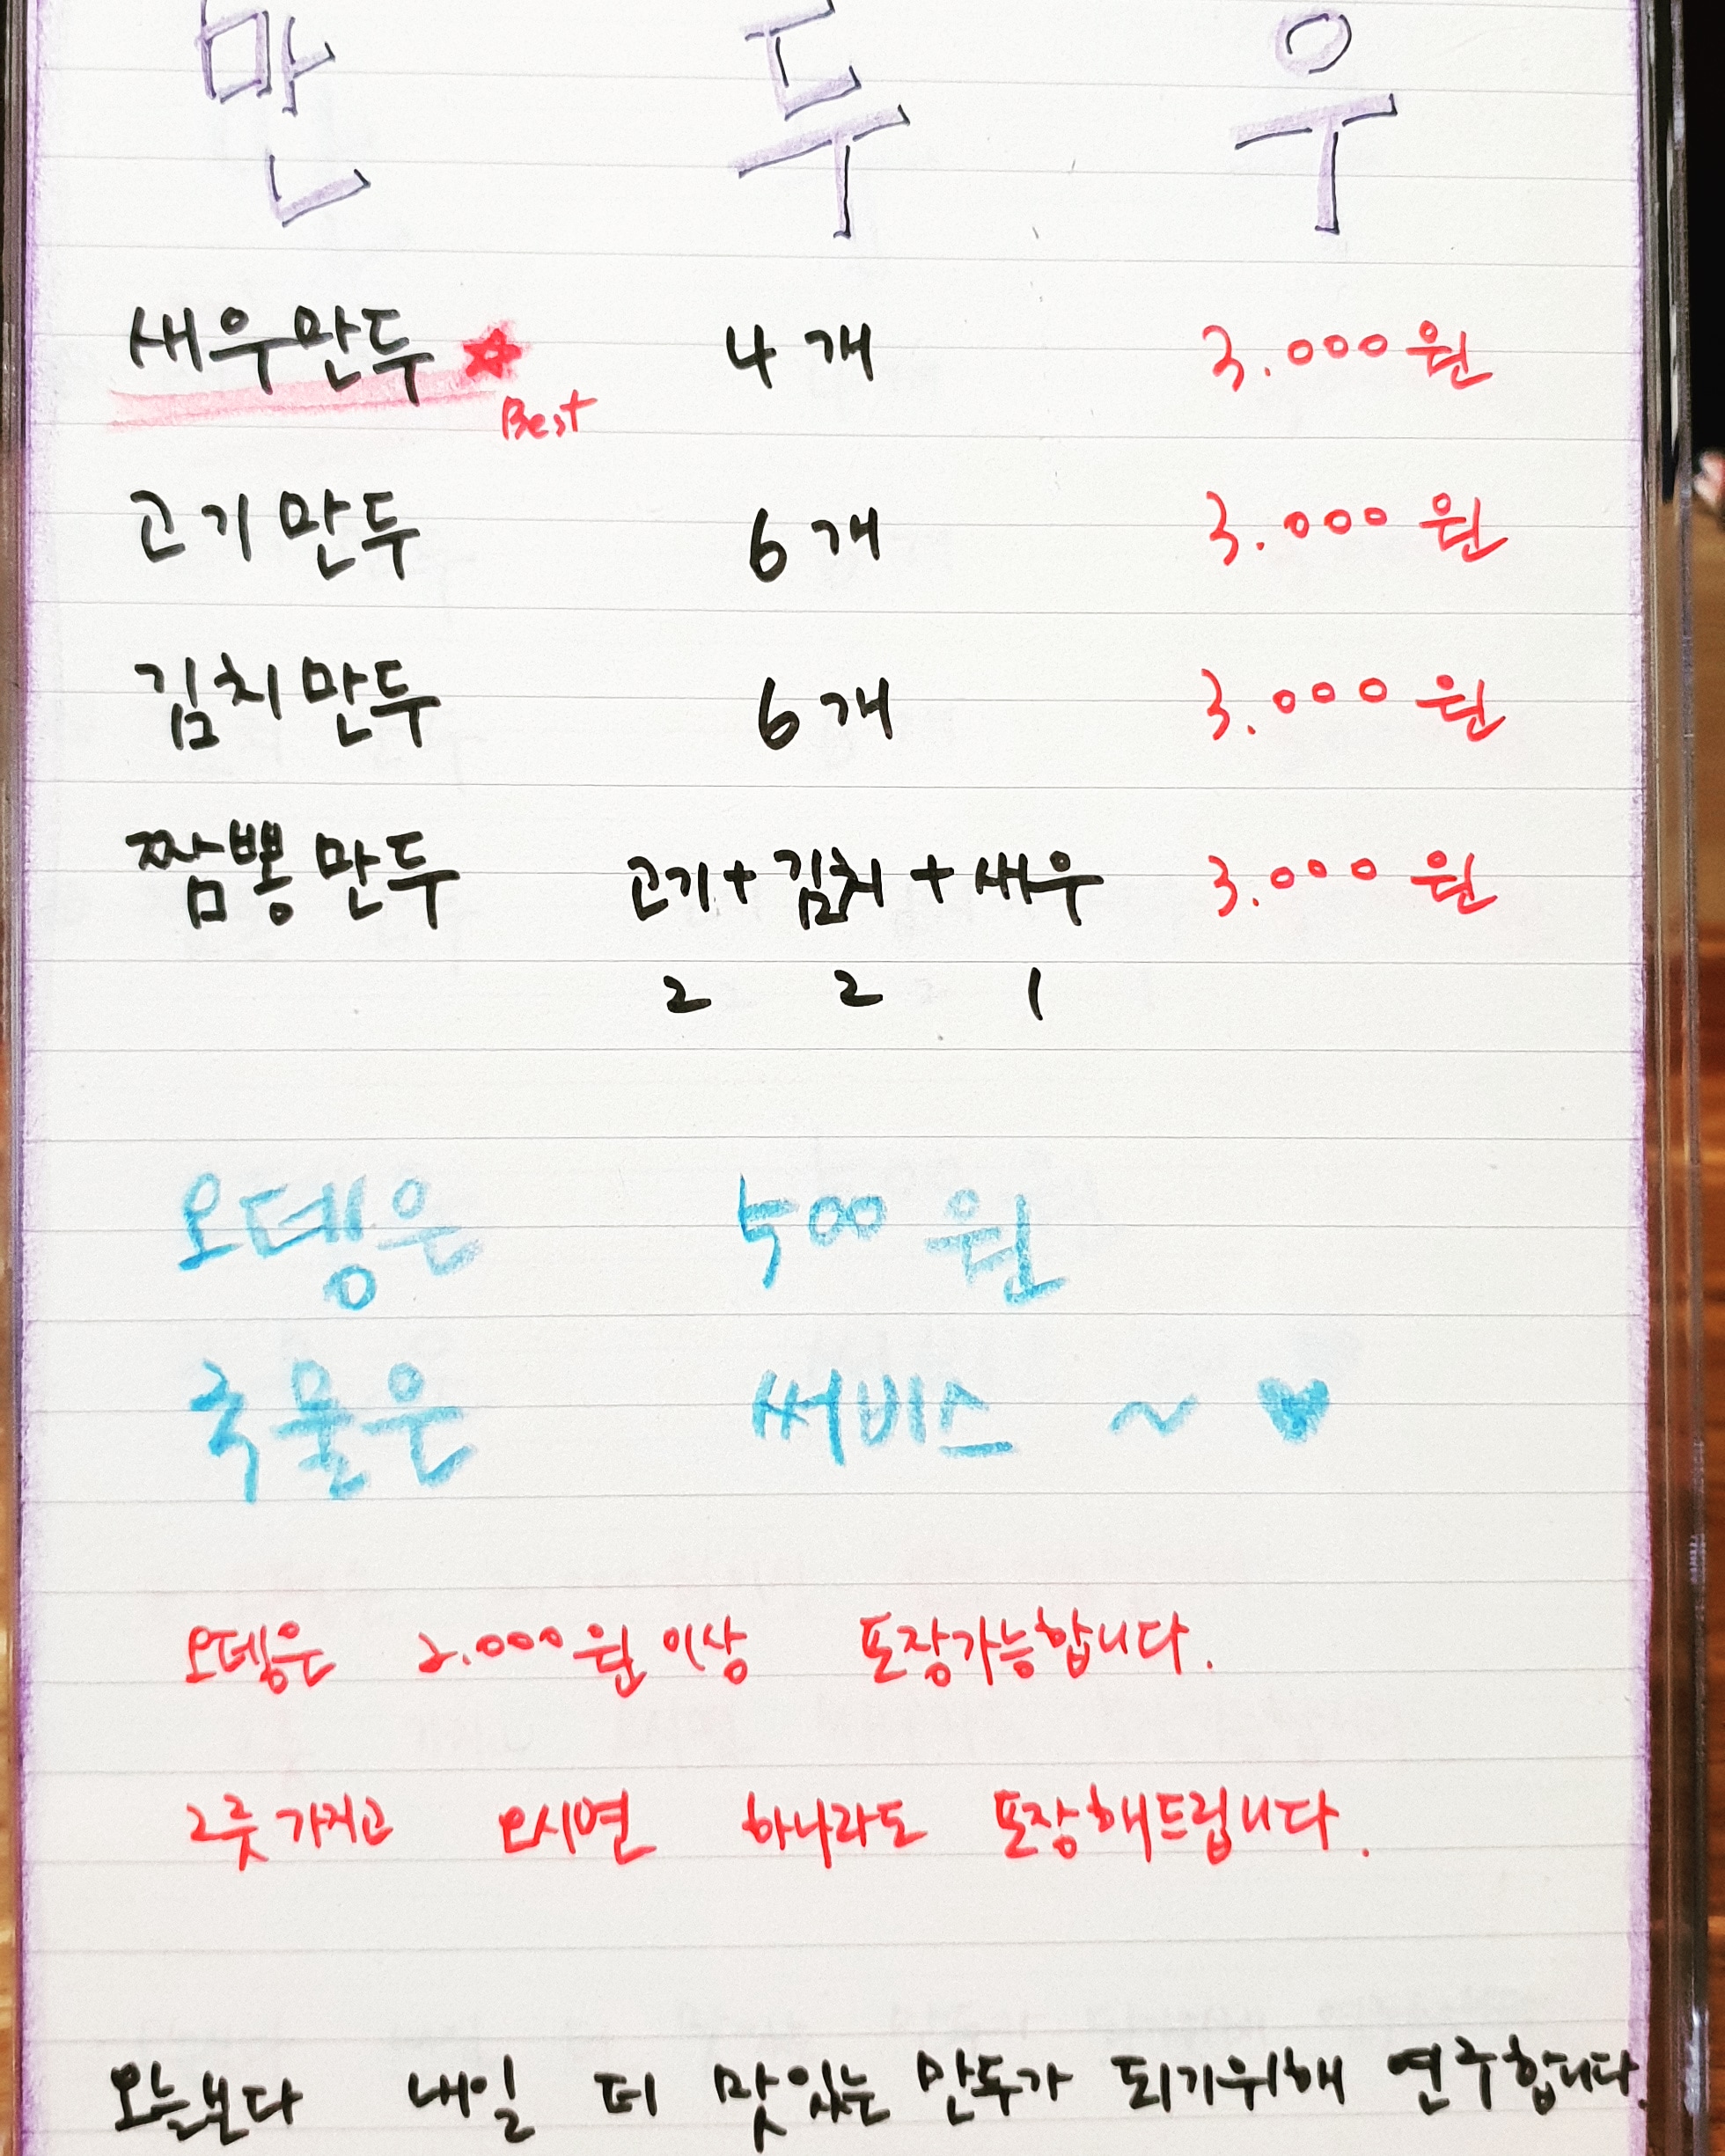 만 두 우
새우만두 ☆ 4개 3.000원
Best
고기만두 6개 3.000원
김치만두 6개 3.000원
짬뽕만두 고기+김치+새우 3.000원
2 2 1
오뎅은 500원
국물은 써비스 ~ ♥
오뎅은 2.000원 이상 포장가능합니다.
그릇 가지고 오시면 하나라도 포장해드립니다.
오늘보다 내일 더 맛있는 만두가 되기위해 연구합니다.